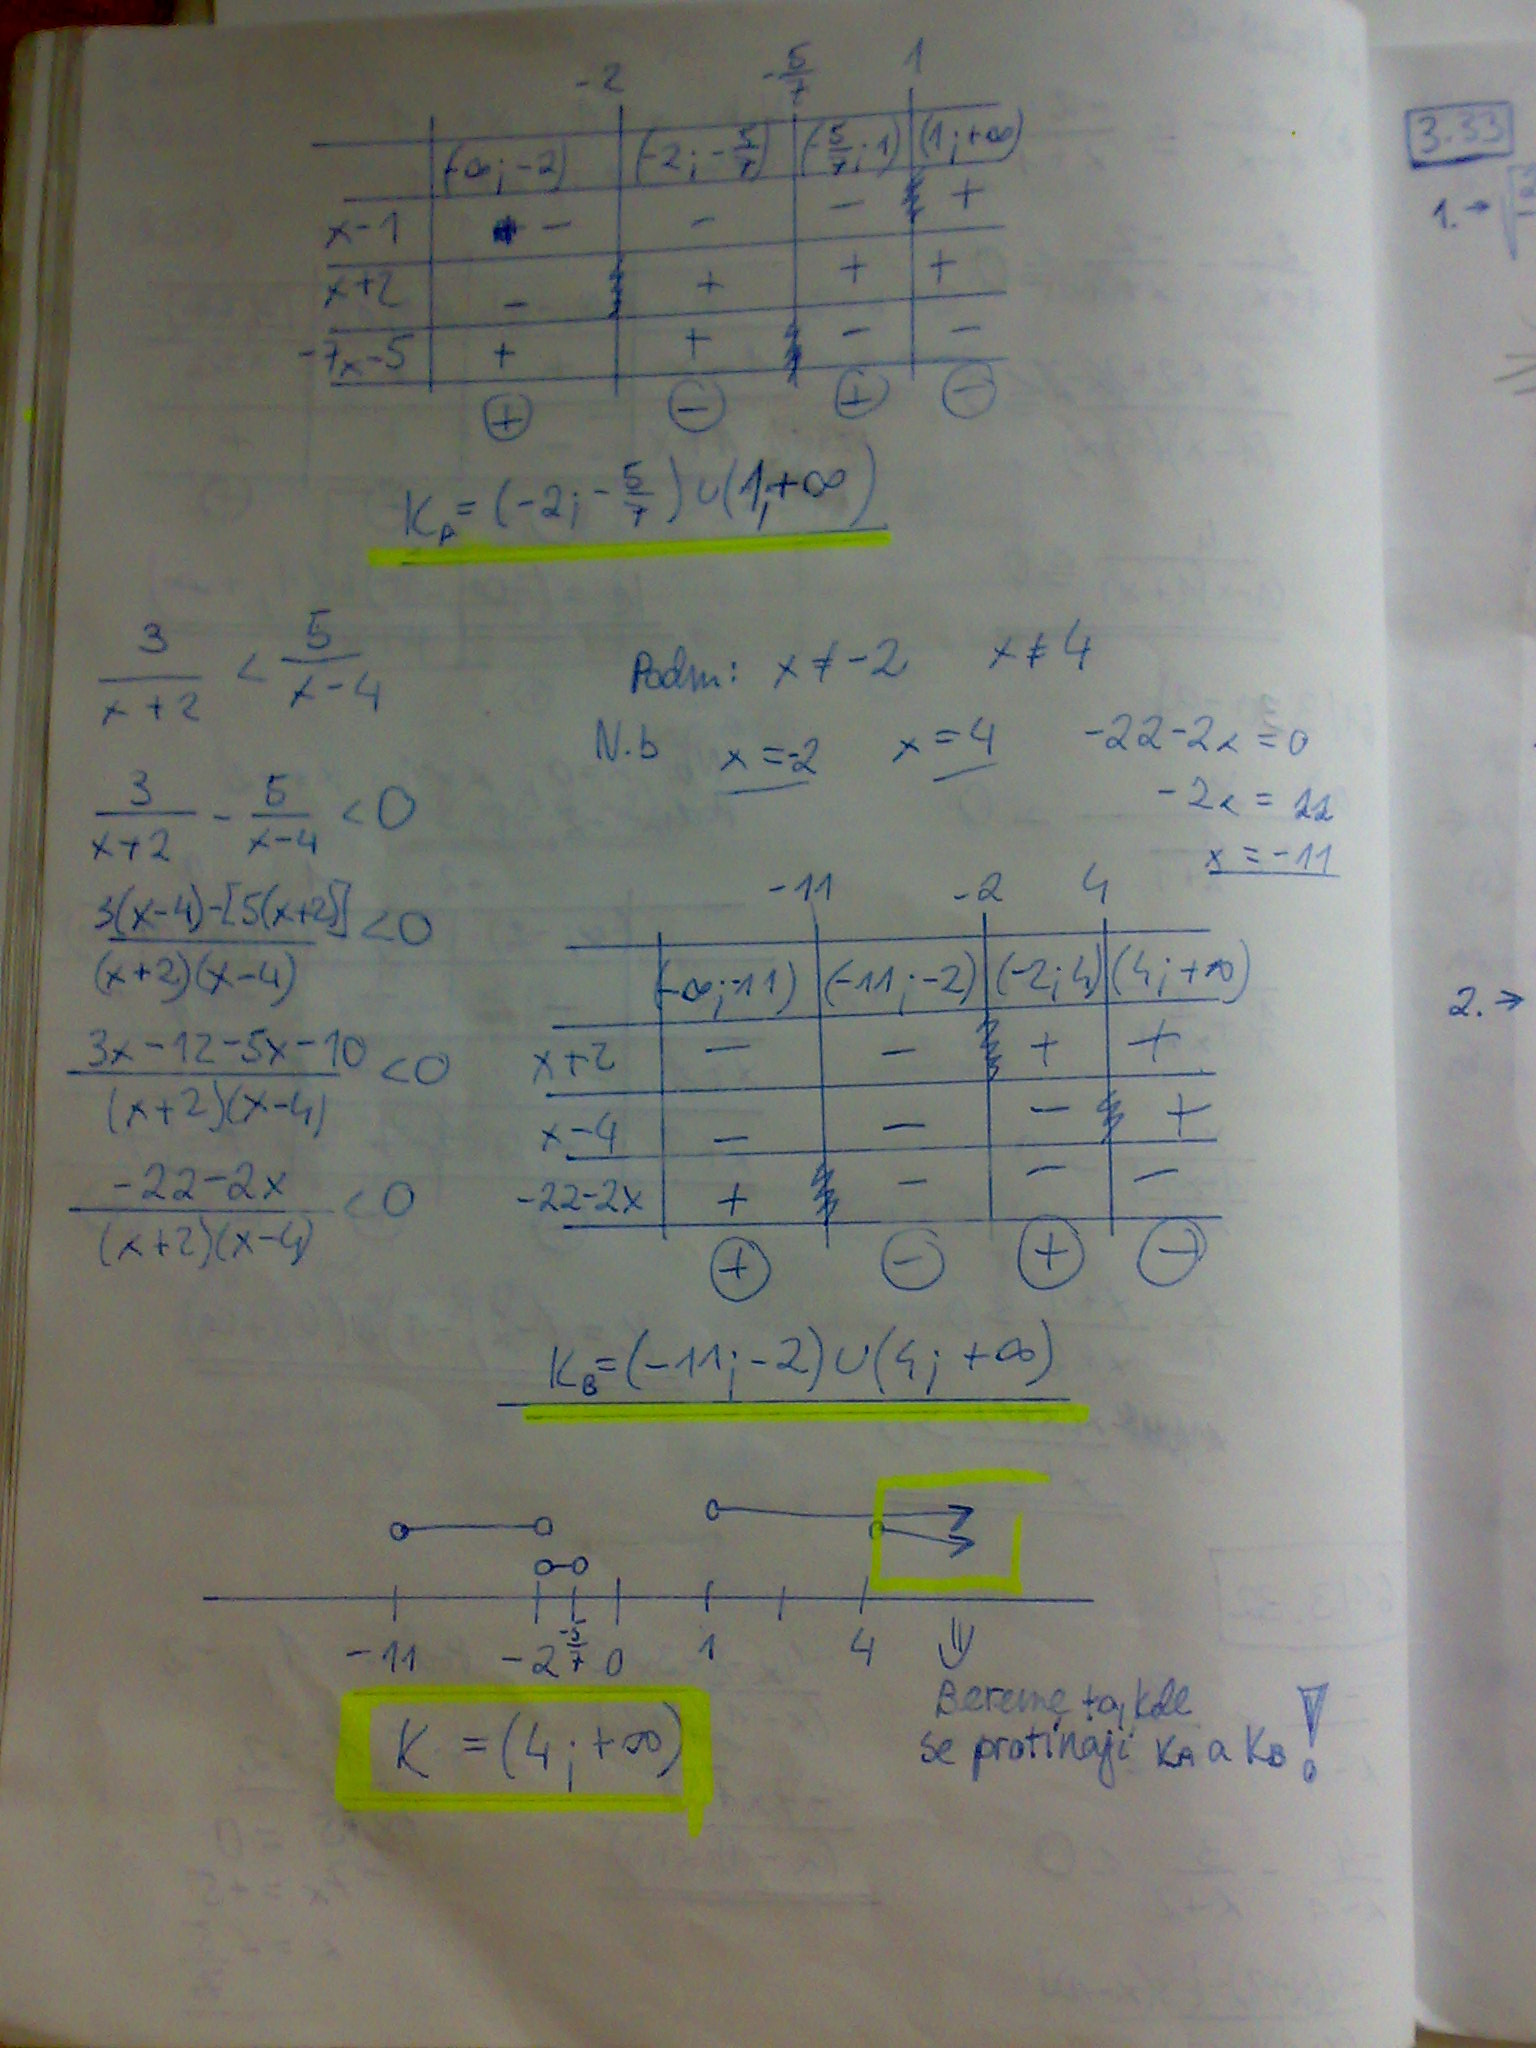 -2 -5/7 1
(-∞;-2) (-2;-5/7) (-5/7;1) (1;+∞)
x-1 - - - +
x+2 - + + +
-7x-5 + + - -
+ - + -
K_A=(-2;-5/7)∪(1;+∞)
3/(x+2) < 5/(x-4)
Podm: x≠-2 x≠4
N.b x=-2 x=4 -22-2x=0
-2x=22
x=-11
3/(x+2) - 5/(x-4) <0
3(x-4)-[5(x+2)]/(x+2)(x-4) <0
3x-12-5x-10/(x+2)(x-4) <0
-22-2x/(x+2)(x-4) <0
-11 -2 4
(-∞;-11) (-11;-2) (-2;4) (4;+∞)
x+2 - - + +
x-4 - - - +
-22-2x + - - -
+ - + -
K_B=(-11;-2)∪(4;+∞)
-11 -2 -5/7 0 1 4
⇓
Bereme to, kde
se protínají K_A a K_B!
K =(4;+∞)
3.33
1.→
2.→